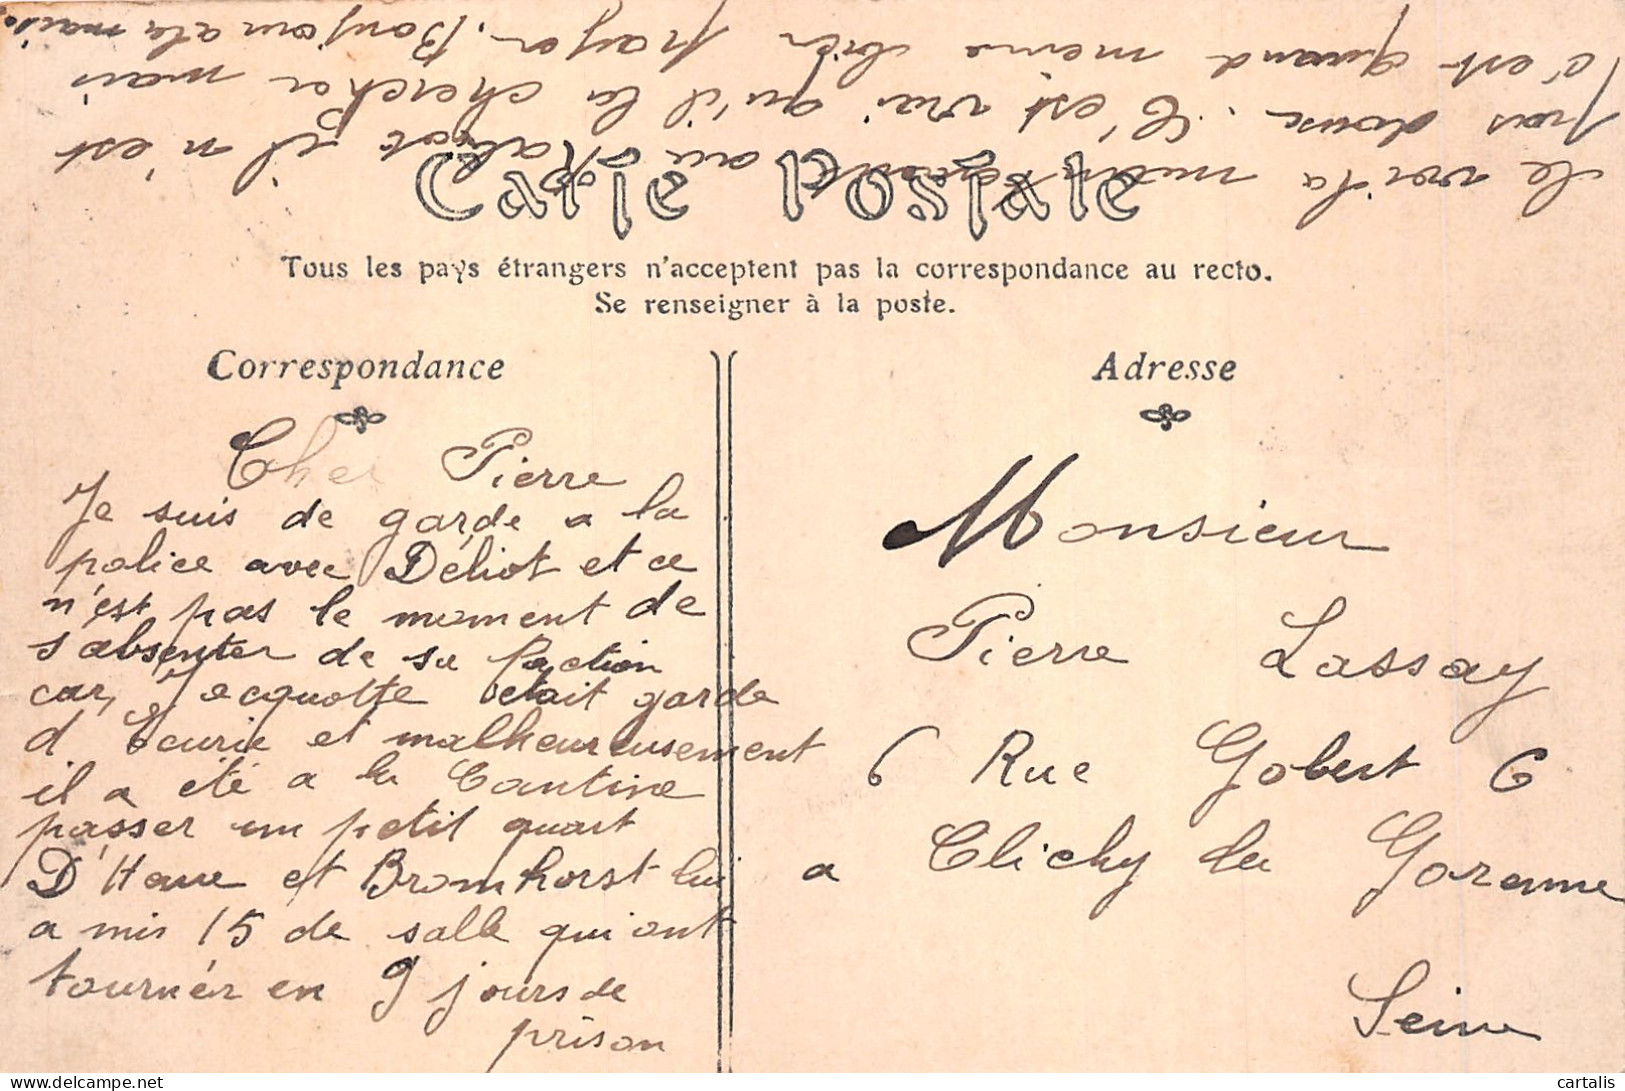 Carte Postale
Tous les pays étrangers n'acceptent pas la correspondance au recto.
Se renseigner à la poste.
Correspondance
Adresse
Cher Pierre
Je suis de garde a la
police avec Déliot et ce
n'est pas le moment de
s'absenter de sa faction
car, Jacquotte etait garde
d'Ecurie et malheureusement
il a été a la Cantine
passer un petit quart
D'Heure et Bromhorst lui
a mis 15 de salle qui ont
tournér en 9 jours de
prison
le voila maintenant au Rabiot il n'est
pas douse. C'est vrai qu'il la chercher mais
c'est quand meme bien payer. Bonjour a la maiso
Monsieur
Pierre Lassay
6 Rue Gobert 6
a Clichy la Garenne
Seine
https://www.delcampe.net
cartalis